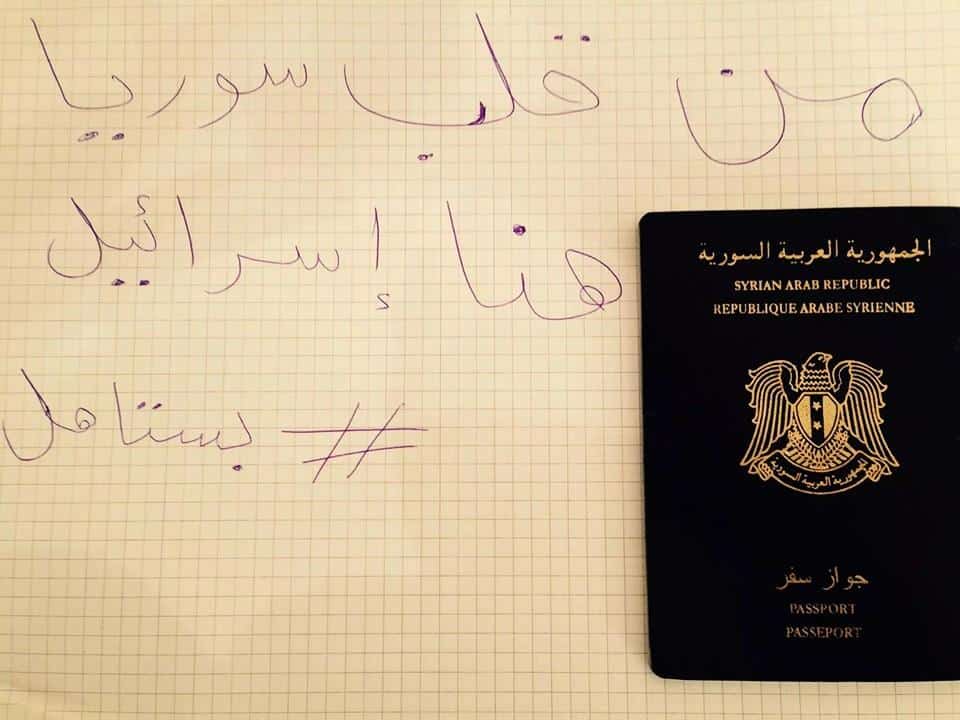 من قلب سوريا
هنا إسرائيل
# بستاهل
الجمهورية العربية السورية
SYRIAN ARAB REPUBLIC
REPUBLIQUE ARABE SYRIENNE
الجمهورية العربية السورية
جواز سفر
PASSPORT
PASSEPORT